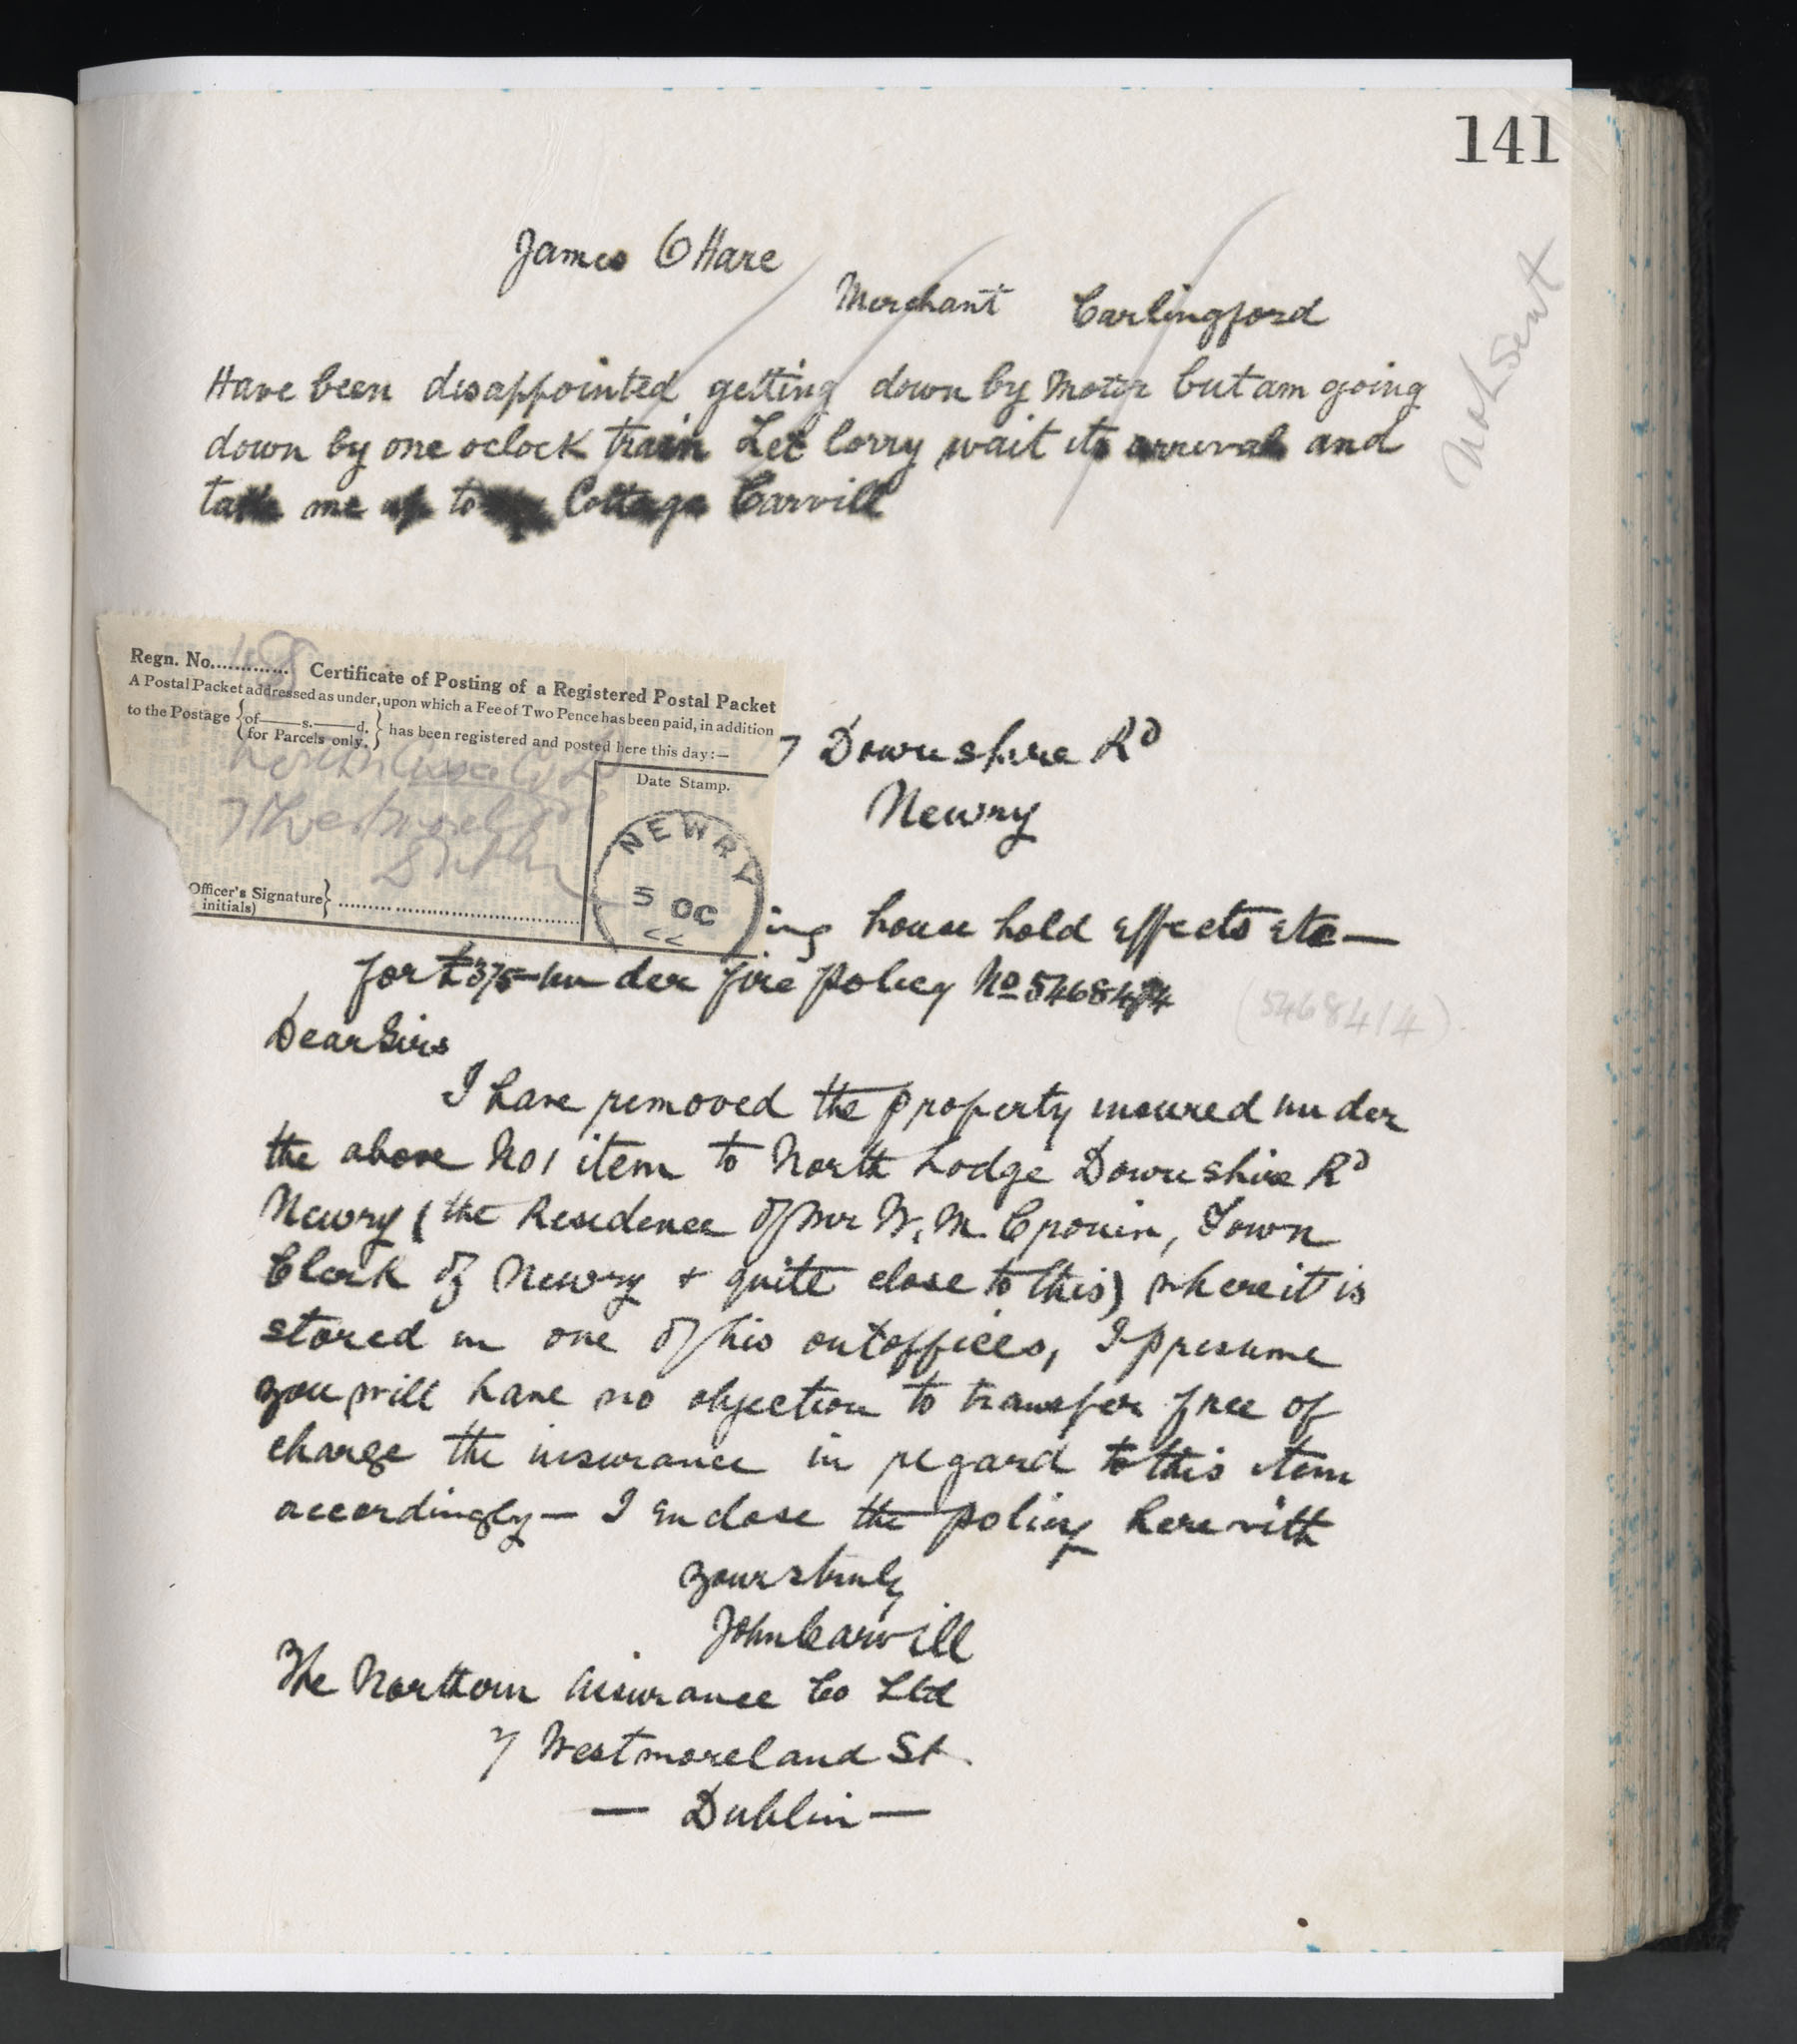 141
James O Hare
Merchant Carlingford
Not Sent
Have been disappointed getting down by Motor but am going
down by one oclock train Let lorry wait its arrival and
take me up to Cottage Carvill
Regn. No. Certificate of Posting of a Registered Postal Packet
A Postal Packet addressed as under, upon which a Fee of Two Pence has been paid, in addition
to the Postage {of——s.——d. for Parcels only.} has been registered and posted here this day:—
Date Stamp.
7 Westmorel St
Dublin
NEWRY
5 OC
Officer's Signature}
initials)
7 Downshire Rd
Newry
ing house hold effects etc—
for £375— under fire policy No 5468414
(5468414)
Dear Sirs
I have removed the property insured under
the above No 1 item to North Lodge Downshire Rd
Newry (the Residence of Mr W. M. Cronin, Town
Clerk of Newry + quite close to this) where it is
stored in one of his outoffices, I presume
you will have no objection to transfer free of
charge the insurance in regard to this item
accordingly— I enclose the policy herewith
yours truly
John Carvill
The Northern Assurance Co Ltd
7 Westmoreland St.
— Dublin —